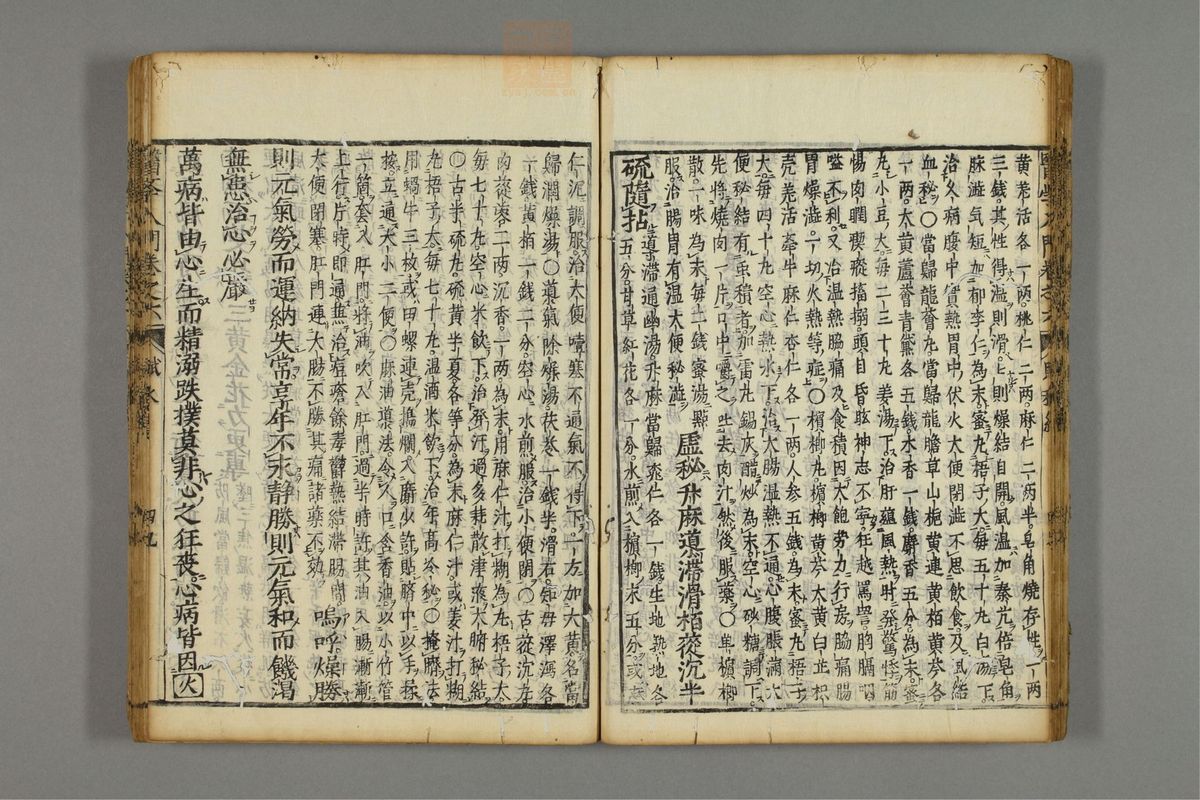 黄芪活各一兩桃仁二兩麻仁二兩半皂角燒存性一兩
三錢其性得濕則滑上則燥結自開風濕加秦艽倍皂角
脉澁氣短加郁李仁為末蜜丸梧子大每五十丸白湯下
治久病腹中實熱胃中伏火大便閉澁不思飲食及風結
血秘○當歸龍薈丸當歸龍膽草山梔黄連黄栢黄芩各
一兩大黄蘆薈青黛各五錢木香一錢麝香五分為末蜜
丸小豆大每二三十丸姜湯下治肝藴風熱時發驚悸筋
惕肉瞤瘈瘲搐搦頭目昏眩神志不寧狂越罵詈胸膈咽
嗌不利又治濕熱脇痛及食積因大飽劳力行房脇痛腸
胃燥澁一切火熱等症○檳榔丸檳榔黄芩大黄白芷枳
壳羌活牽牛麻仁杏仁各一兩人参五錢為末蜜丸梧子
大每四十丸空心熱水下治大腸温熱不通心腹脹滿大
便秘結有虫積者加雷丸錫灰醋炒為末空心砂糖調下
先將燒肉一片口中嚼之吐去肉汁然後服藥○單檳榔
散一味為末每二錢蜜湯點
服治腸胃有温大便秘澁
虚秘升麻導滯滑栢蓯沉半
硫隨拈
導滯通幽湯升麻當歸桃仁各一錢生地熟地各
五分甘草紅花各一分水煎入檳榔末五分或去
仁沉調服治大便噎塞不通氣不得下一方加大黄名當
歸潤燥湯○導氣除燥湯茯苓一錢半滑石知母澤瀉各
一錢黄栢一錢二分空心水煎服治小便閉○古蓯沉丸
肉蓯蓉二兩沉香一兩為末用麻仁汁打糊為丸梧子大
每七十丸空心米飲下治發汗過多耗散津液大腑秘結
○古半硫丸硫黄半夏各等分為末麻仁汁或姜汁打糊
丸梧子大每七十丸温酒米飲下治年高冷秘○掩臍法
用蝸牛三枚或田螺連壳搗爛入麝少許貼臍中以手揉
按立通大小二便○油道法令人口含香油以小水竹管
一筒套入肛門將油吹入肛門過半時許其油入腸漸漸
上行片時即通無治痘疹餘毒鬱熱結滯腸間
大便閉塞肛門連大腸不勝其痛諸藥不效
嗚呼燥勝
則元氣勞而運納失常亭年不永靜勝則元氣和而饑渴
無患治心必嚴
萬病皆由心生而精溺跌撲莫非心之狂喪心病皆因火
醫學入門卷之六
賦
四九